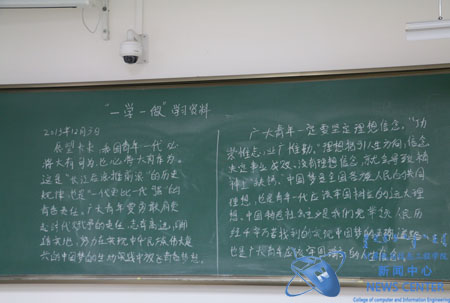 "一学一做"学习资料
2015年12月3日
展望未来，我国青年一代必
将大有可为，也必将大有作为。
这是"长江后浪推前浪"的历史
规律，也是"一代更比一代强"的
青春责任。广大青年要勇敢肩负
起时代赋予的重任，志存高远，脚
踏实地，努力在实现中华民族伟大复
兴的中国梦的生动实践中放飞青春梦想。
广大青年一定要坚定理想信念。"功
崇惟志，业广惟勤。"理想指引人生方向，信念
决定事业成败。没有理想信念，就会导致精
神上"缺钙"。中国梦是全国各族人民的共同
理想，也是青年一代应该牢固树立的远大理
想。中国特色社会主义是我们党带领人民历
经千辛万苦找到的实现中国梦的正确道路，
也是广大青年应该牢固确立的人生信念。
新闻中心
NEWS CENTER
College of computer and Information Engineering